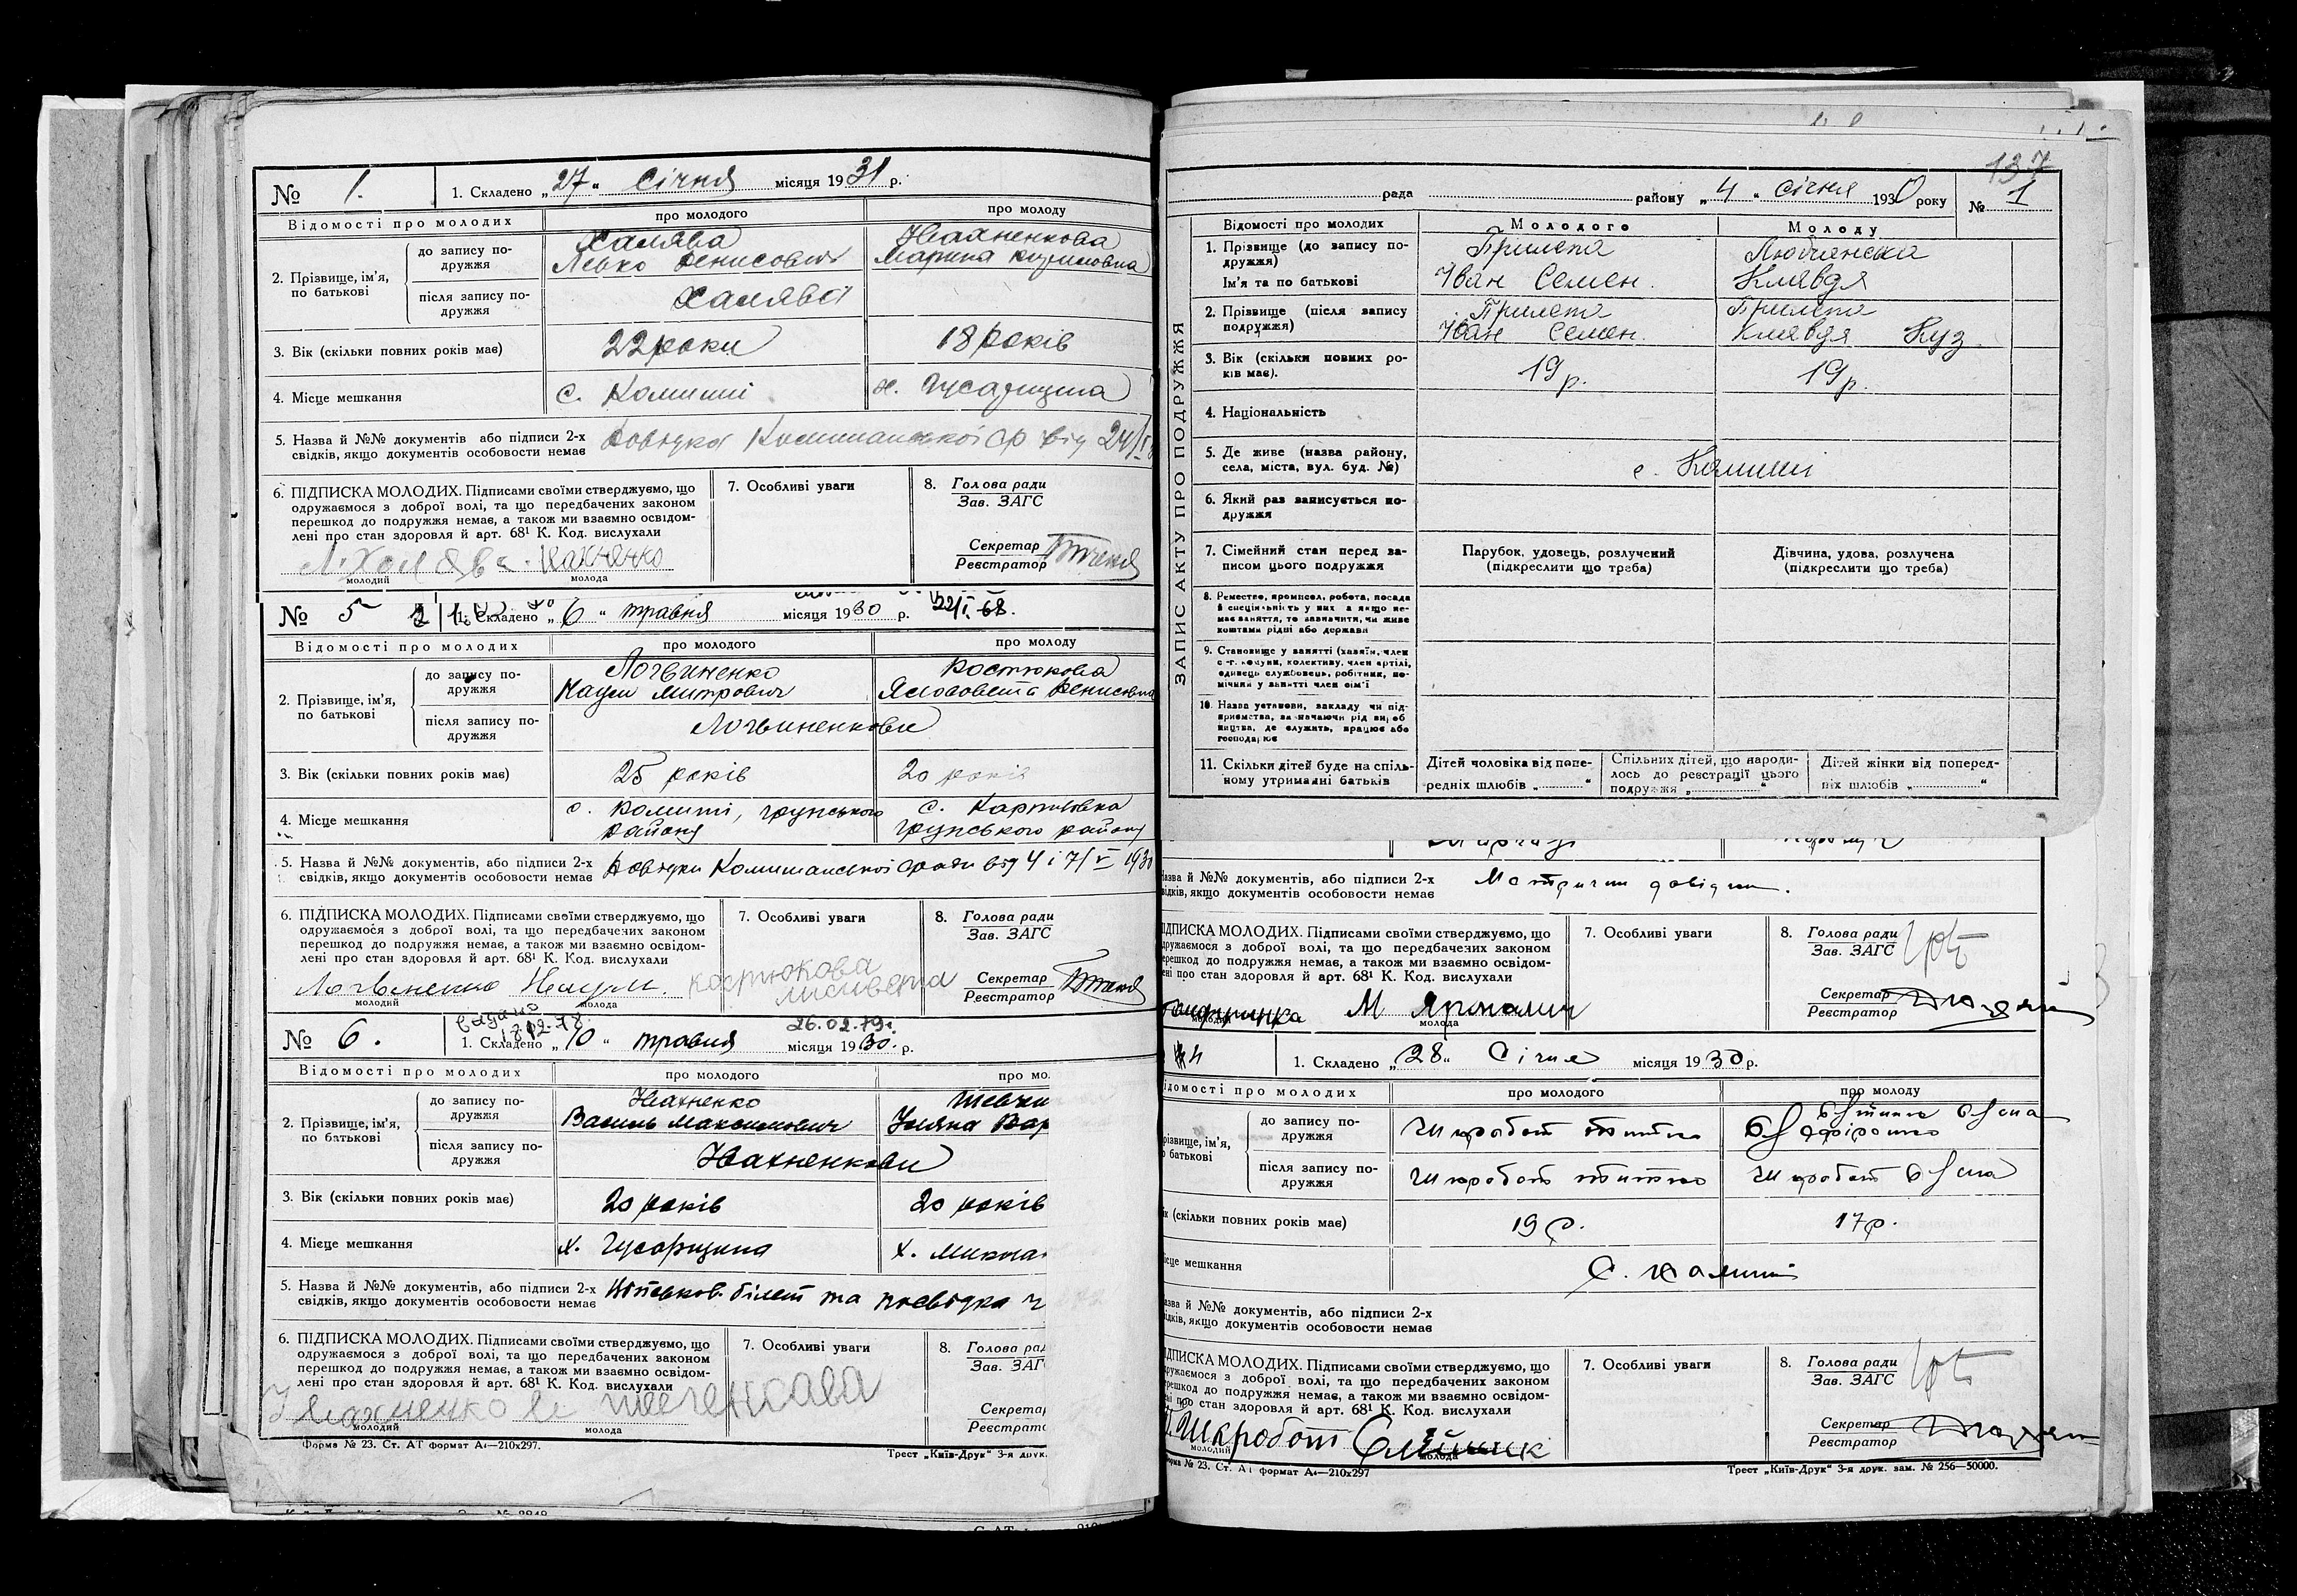 № 1. 1. Складено „27“ січня місяця 1931 р.
Відомості про молодих про молодого про молоду
2. Прізвище, ім'я, по батькові
до запису подружжя
Халява Нахненкова
Левко Денисович Марина
після запису подружжя
Халяви
3. Вік (скільки повних років має) 22 роки 18 років
4. Місце мешкання с. Комиші х. Гусарщина
5. Назва й №№ документів або підписи 2-х
свідків, якщо документів особовости немає
Довідка Комишанської ср від 24/I
6. ПІДПИСКА МОЛОДИХ. Підписами своїми стверджуємо, що
одружаємося з доброї волі, та що передбачених законом
перешкод до подружжя немає, а також ми взаємно освідом-
лені про стан здоровля й арт. 68¹ К. Код. вислухали
молодий молода
7. Особливі уваги
8. Голова ради
Зав. ЗАГС
Секретар
Реєстратор
№ 5 1. Складено „6“ травня місяця 1930 р. 22/I-68.
Відомості про молодих про молодого про молоду
2. Прізвище, ім'я, по батькові
до запису подружжя
Логвиненко Костюкова
Наум Митрович Денисовна
після запису подружжя
Логвиненкови
3. Вік (скільки повних років має) 25 років 20 років
4. Місце мешкання
с. Комиші, грунського с. Карпилівка
району грунського району
5. Назва й №№ документів, або підписи 2-х
свідків, якщо документів особовости немає
Довідки Комишанської сради від 4 і 7/V 1930
6. ПІДПИСКА МОЛОДИХ. Підписами своїми стверджуємо, що
одружаємося з доброї волі, та що передбачених законом
перешкод до подружжя немає, а також ми взаємно освідом-
лені про стан здоровля й арт. 68¹ К. Код. вислухали
Логвененко Наум. костюкова
молодий молода
7. Особливі уваги
8. Голова ради
Зав. ЗАГС
Секретар
Реєстратор
№ 6. видано 17.02.78. 26.02.79г.
1. Складено „10“ травня місяця 1930. р.
Відомості про молодих про молодого про мо
2. Прізвище, ім'я, по батькові
до запису подружжя
Нахненко Шевчен
Василь Максимович Уляна Вар
після запису подружжя
Нахненкови
3. Вік (скільки повних років має) 20 років 20 років
4. Місце мешкання х. Гусарщина х. Микола
5. Назва й №№ документів, або підписи 2-х
свідків, якщо документів особовости немає
білет та посвідка
6. ПІДПИСКА МОЛОДИХ. Підписами своїми стверджуємо, що
одружаємося з доброї волі, та що передбачених законом
перешкод до подружжя немає, а також ми взаємно освідом-
лені про стан здоровля й арт. 68¹ К. Код. вислухали
молодий молода
7. Особливі уваги
8. Голова рад
Зав. ЗАГ
Секретар
Реєстрато
Форма № 23. Ст. АТ формат А₄—210x297. Трест „Київ-Друк“ 3-я друк.
137
рада району „4“ січня 1930 року № 1
ЗАПИС АКТУ ПРО ПОДРУЖЖЯ
Відомості про молодих Молодого Молоду
1. Прізвище (до запису подружжя) Прилепа Любчанська
Ім'я та по батькові Іван Семен. Клявдя
2. Прізвище (після запису подружжя) Прилепа Прилепа
Іван Семен. Клявдя Куз.
3. Вік (скільки повних років має). 19 р. 19 р.
4. Національність
5. Де живе (назва району,
села, міста, вул. буд. №) с. Комиші
6. Який раз записується подружжя
7. Сімейний стан перед записом цього подружжя
Парубок, удовець, розлучений
(підкреслити що треба)
Дівчина, удова, розлучена
(підкреслити що треба)
8. Ремество, промисел, робота, посада
й спеціяльність у них а якщо не-
має заняття, то зазначити, чи живе
коштами рідні або держави
9. Становище у занятті (хазяїн, член
с.-г. комуни, колективу, член артілі,
одинець службовець, робітник, по-
мічний у занятті член сім'ї
10. Назва установи, закладу чи під-
приємства, зазначаючи рід вироб-
ництва, де служить, працює або
господарює
11. Скільки дітей буде на спіль-
ному утриманні батьків
Дітей чоловіка від попе-
редніх шлюбів „ “
Спільних дітей, що народи-
лось до реєстрації цього
подружжя „ “
Дітей жінки від поперед-
ніх шлюбів „ “
азва й №№ документів, або підписи 2-х
відків, якщо документів особовости немає
Метричні довідки.
ІДПИСКА МОЛОДИХ. Підписами своїми стверджуємо, що
дружаємося з доброї волі, та що передбачених законом
ерешкод до подружжя немає, а також ми взаємно освідом-
ені про стан здоровля й арт. 68¹ К. Код. вислухали
молода
7. Особливі уваги
8. Голова ради
Зав. ЗАГС
Секретар
Реєстратор
4 1. Складено „28“ Січня місяця 1930 р.
ідомості про молодих про молодого про молоду
різвище, ім'я,
о батькові
до запису подружжя
після запису подружжя
ік (скільки повних років має) 19 р. 17 р.
ісце мешкання С. Комиші
азва й №№ документів, або підписи 2-х
ідків, якщо документів особовости немає
ІДПИСКА МОЛОДИХ. Підписами своїми стверджуємо, що
дружаємося з доброї волі, та що передбачених законом
решкод до подружжя немає, а також ми взаємно освідом-
ені про стан здоровля й арт. 68¹ К. Код. вислухали
Шкробот
молодий молода
7. Особливі уваги
8. Голова ради
Зав. ЗАГС
Секретар
Реєстратор
орма № 23. Ст. АТ формат А₄—210x297 Трест „Київ-Друк“ 3-я друк. зам. № 256—50000.